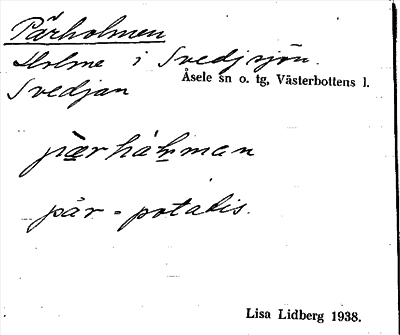 Pärholmen
Holme i Svedjsjön.
Åsele sn o. tg, Västerbottens l.
Svedjan
pärhåḻman
pär = potatis.
Lisa Lidberg 1938.